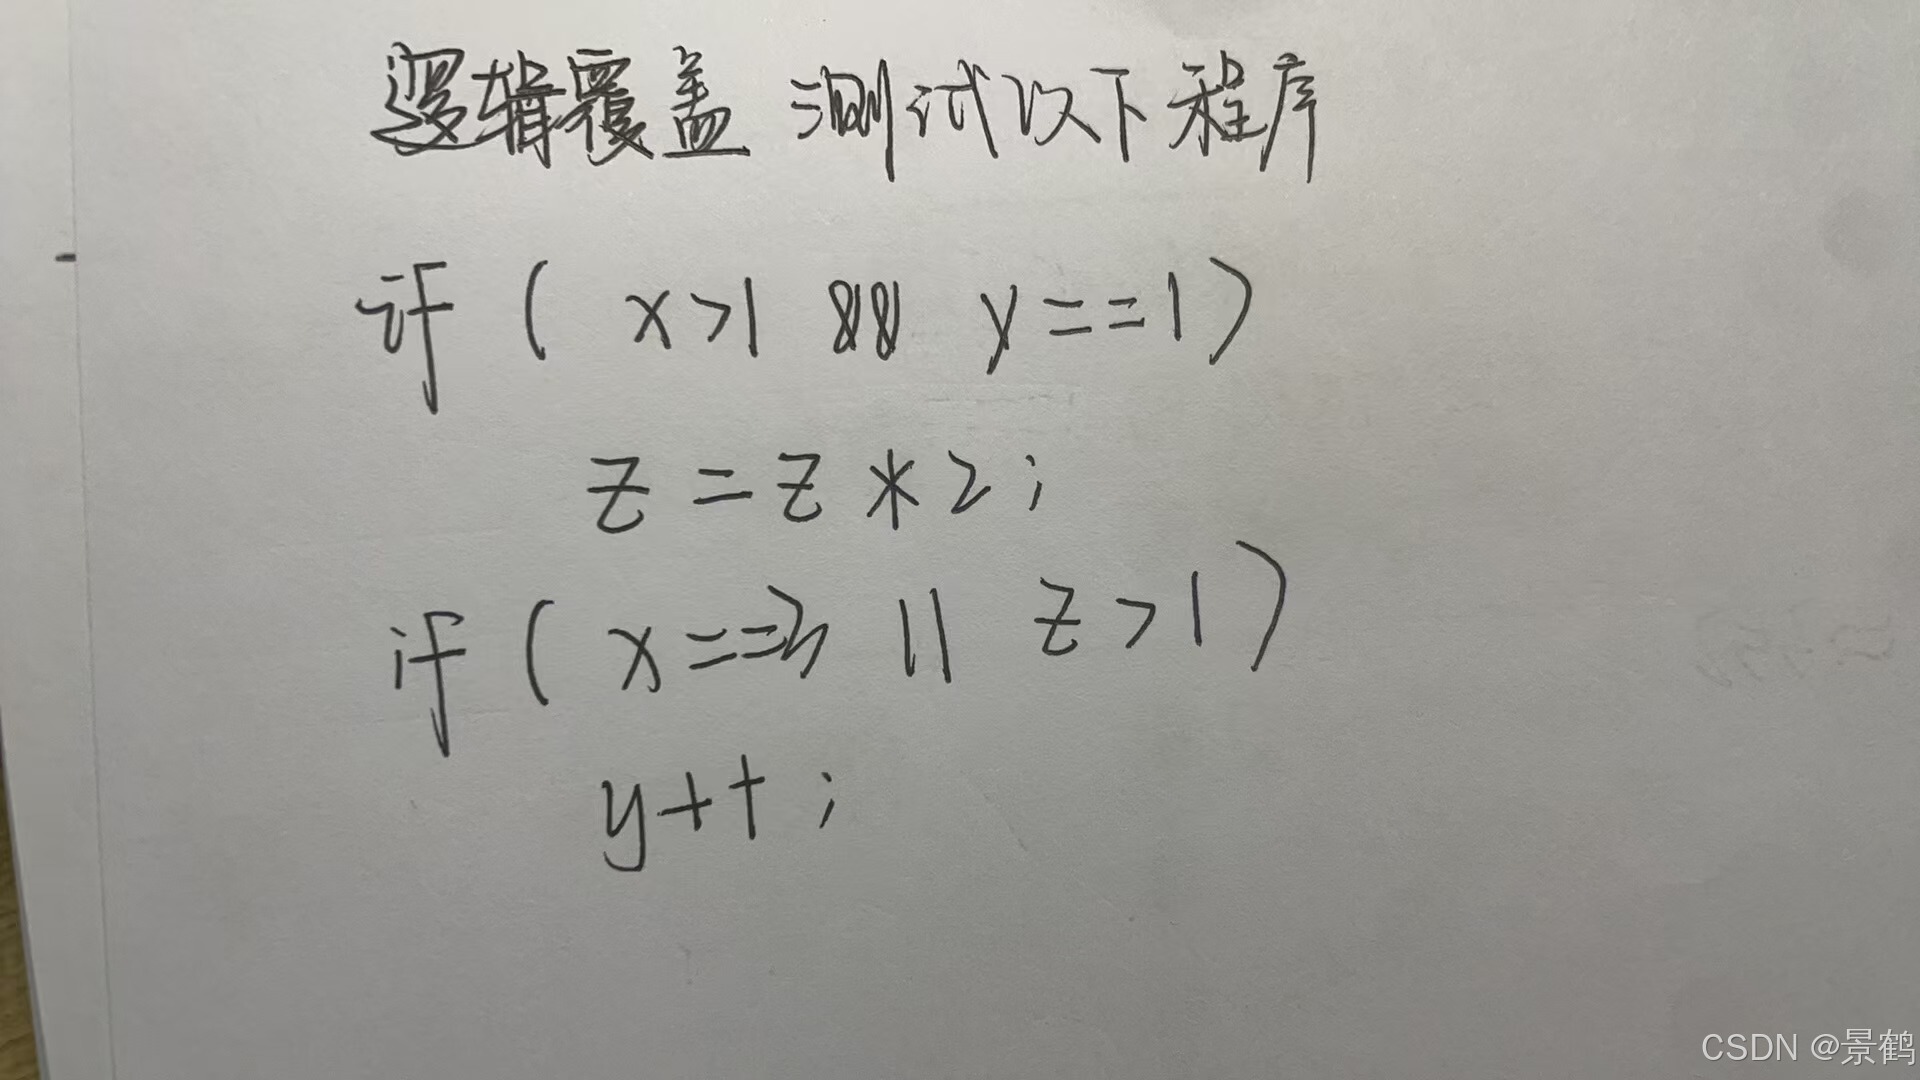 逻辑覆盖 测试以下程序
if ( x>1 && y==1)
z = z * 2;
if ( x==3 || z>1)
y++;
CSDN @景鹤